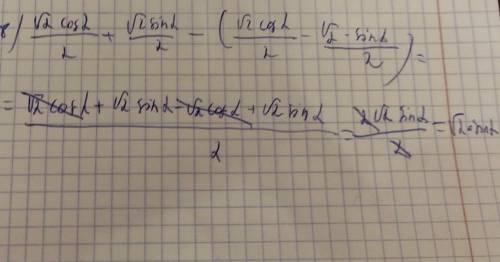 в) √2 cosα/2 + √2 sinα/2 − (√2 cosα/2 − √2·sinα/2) =
= (√2 cosα + √2 sinα − √2 cosα + √2 sinα)/2 = 2√2 sinα/2 = √2·sinα